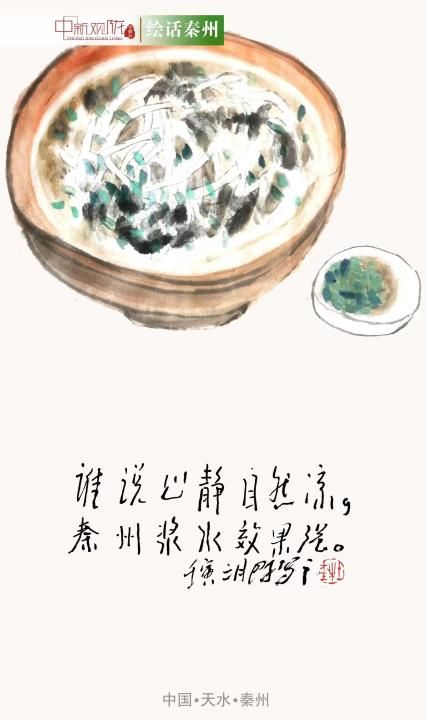 中新观陇
ZHONG XIN GUAN LONG
绘话秦州
谁说心静自然凉，
秦州浆水效果强。
中国•天水•秦州